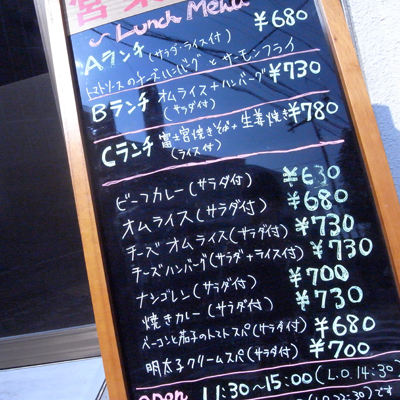 営業
~ Lunch Menu
Aランチ(サラダ・ライス付) ¥680
トマトソースのチーズハンバーグとサーモンフライ
Bランチ オムライス+ハンバーグ ¥730
(サラダ付)
Cランチ 富士宮焼きそば+生姜焼き ¥780
(ライス付)
ビーフカレー(サラダ付) ¥630
オムライス(サラダ付) ¥680
チーズオムライス(サラダ付) ¥730
チーズハンバーグ(サラダ+ライス付) ¥730
ナシゴレン(サラダ付) ¥700
焼きカレー(サラダ付) ¥730
ベーコンと茄子のトマトスパ(サラダ付) ¥680
明太子クリームスパ(サラダ付) ¥700
open 11:30~15:00(L.O.14:30)
(L.O.22:30)です